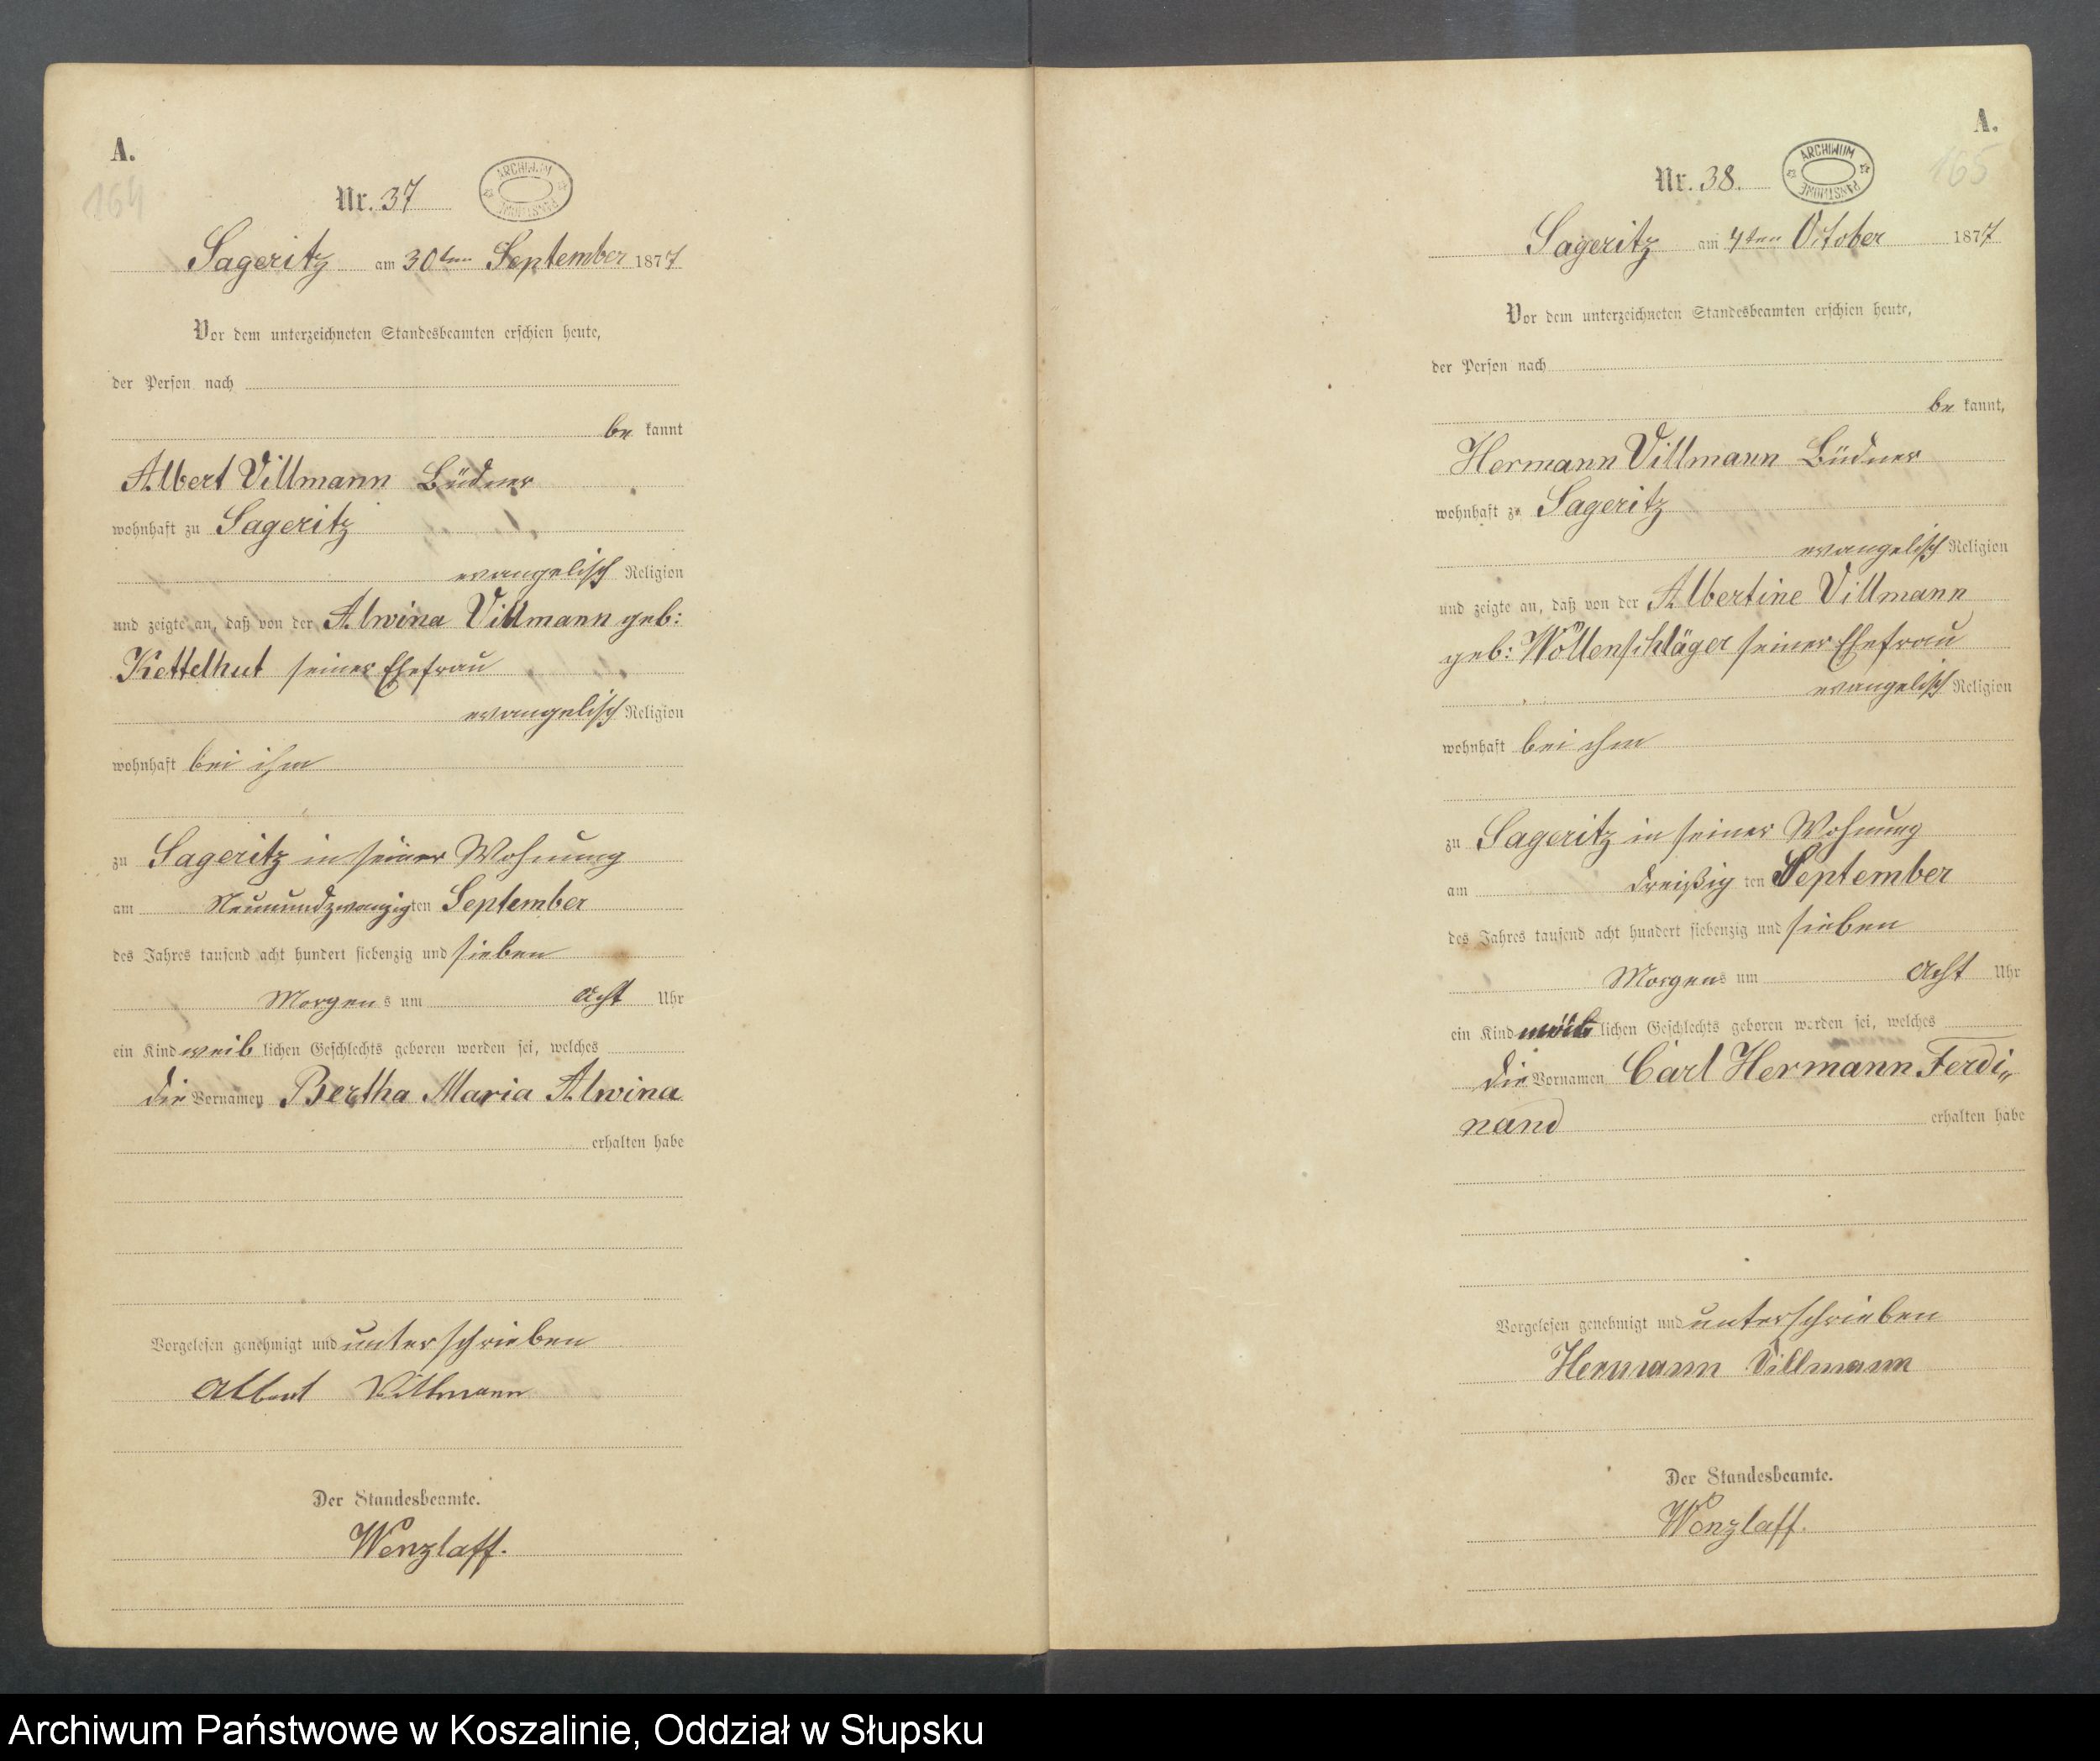 A.
164
Nr. 37
ARCHIWUM PAŃSTWOWE
Sageritz am 30ten September 1877
Vor dem unterzeichneten Standesbeamten erschien heute,
der Person nach
be kannt
Albert Villmann Büdner
wohnhaft zu Sageritz
evangelisch Religion
und zeigte an, daß von der Alwina Villmann geb:
Kettelhut seiner Ehefrau
evangelisch Religion
wohnhaft bei ihm
zu Sageritz in seiner Wohnung
am Neunundzwanzig ten September
des Jahres tausend acht hundert siebenzig und sieben
Morgen s um Acht Uhr
ein Kind weib lichen Geschlechts geboren worden sei, welches
die Vornamen Bertha Maria Alwina
erhalten habe
Vorgelesen genehmigt und unterschrieben
Albert Villmann
Der Standesbeamte.
Wenzlaff.
A.
165
Nr. 38.
ARCHIWUM PAŃSTWOWE
Sageritz am 4ten October 1877
Vor dem unterzeichneten Standesbeamten erschien heute,
der Person nach
be kannt,
Hermann Villmann Büdner
wohnhaft zu Sageritz
evangelisch Religion
und zeigte an, daß von der Albertine Villmann
geb: Wollenschläger seiner Ehefrau
evangelisch Religion
wohnhaft bei ihm
zu Sageritz in seiner Wohnung
am dreißig ten September
des Jahres tausend acht hundert siebenzig und sieben
Morgen s um Acht Uhr
ein Kind lichen Geschlechts geboren worden sei, welches
die Vornamen Carl Hermann Ferdi„
nand erhalten habe
Vorgelesen genehmigt und unterschrieben
Hermann Villmann
Der Standesbeamte.
Wenzlaff.
Archiwum Państwowe w Koszalinie, Oddział w Słupsku